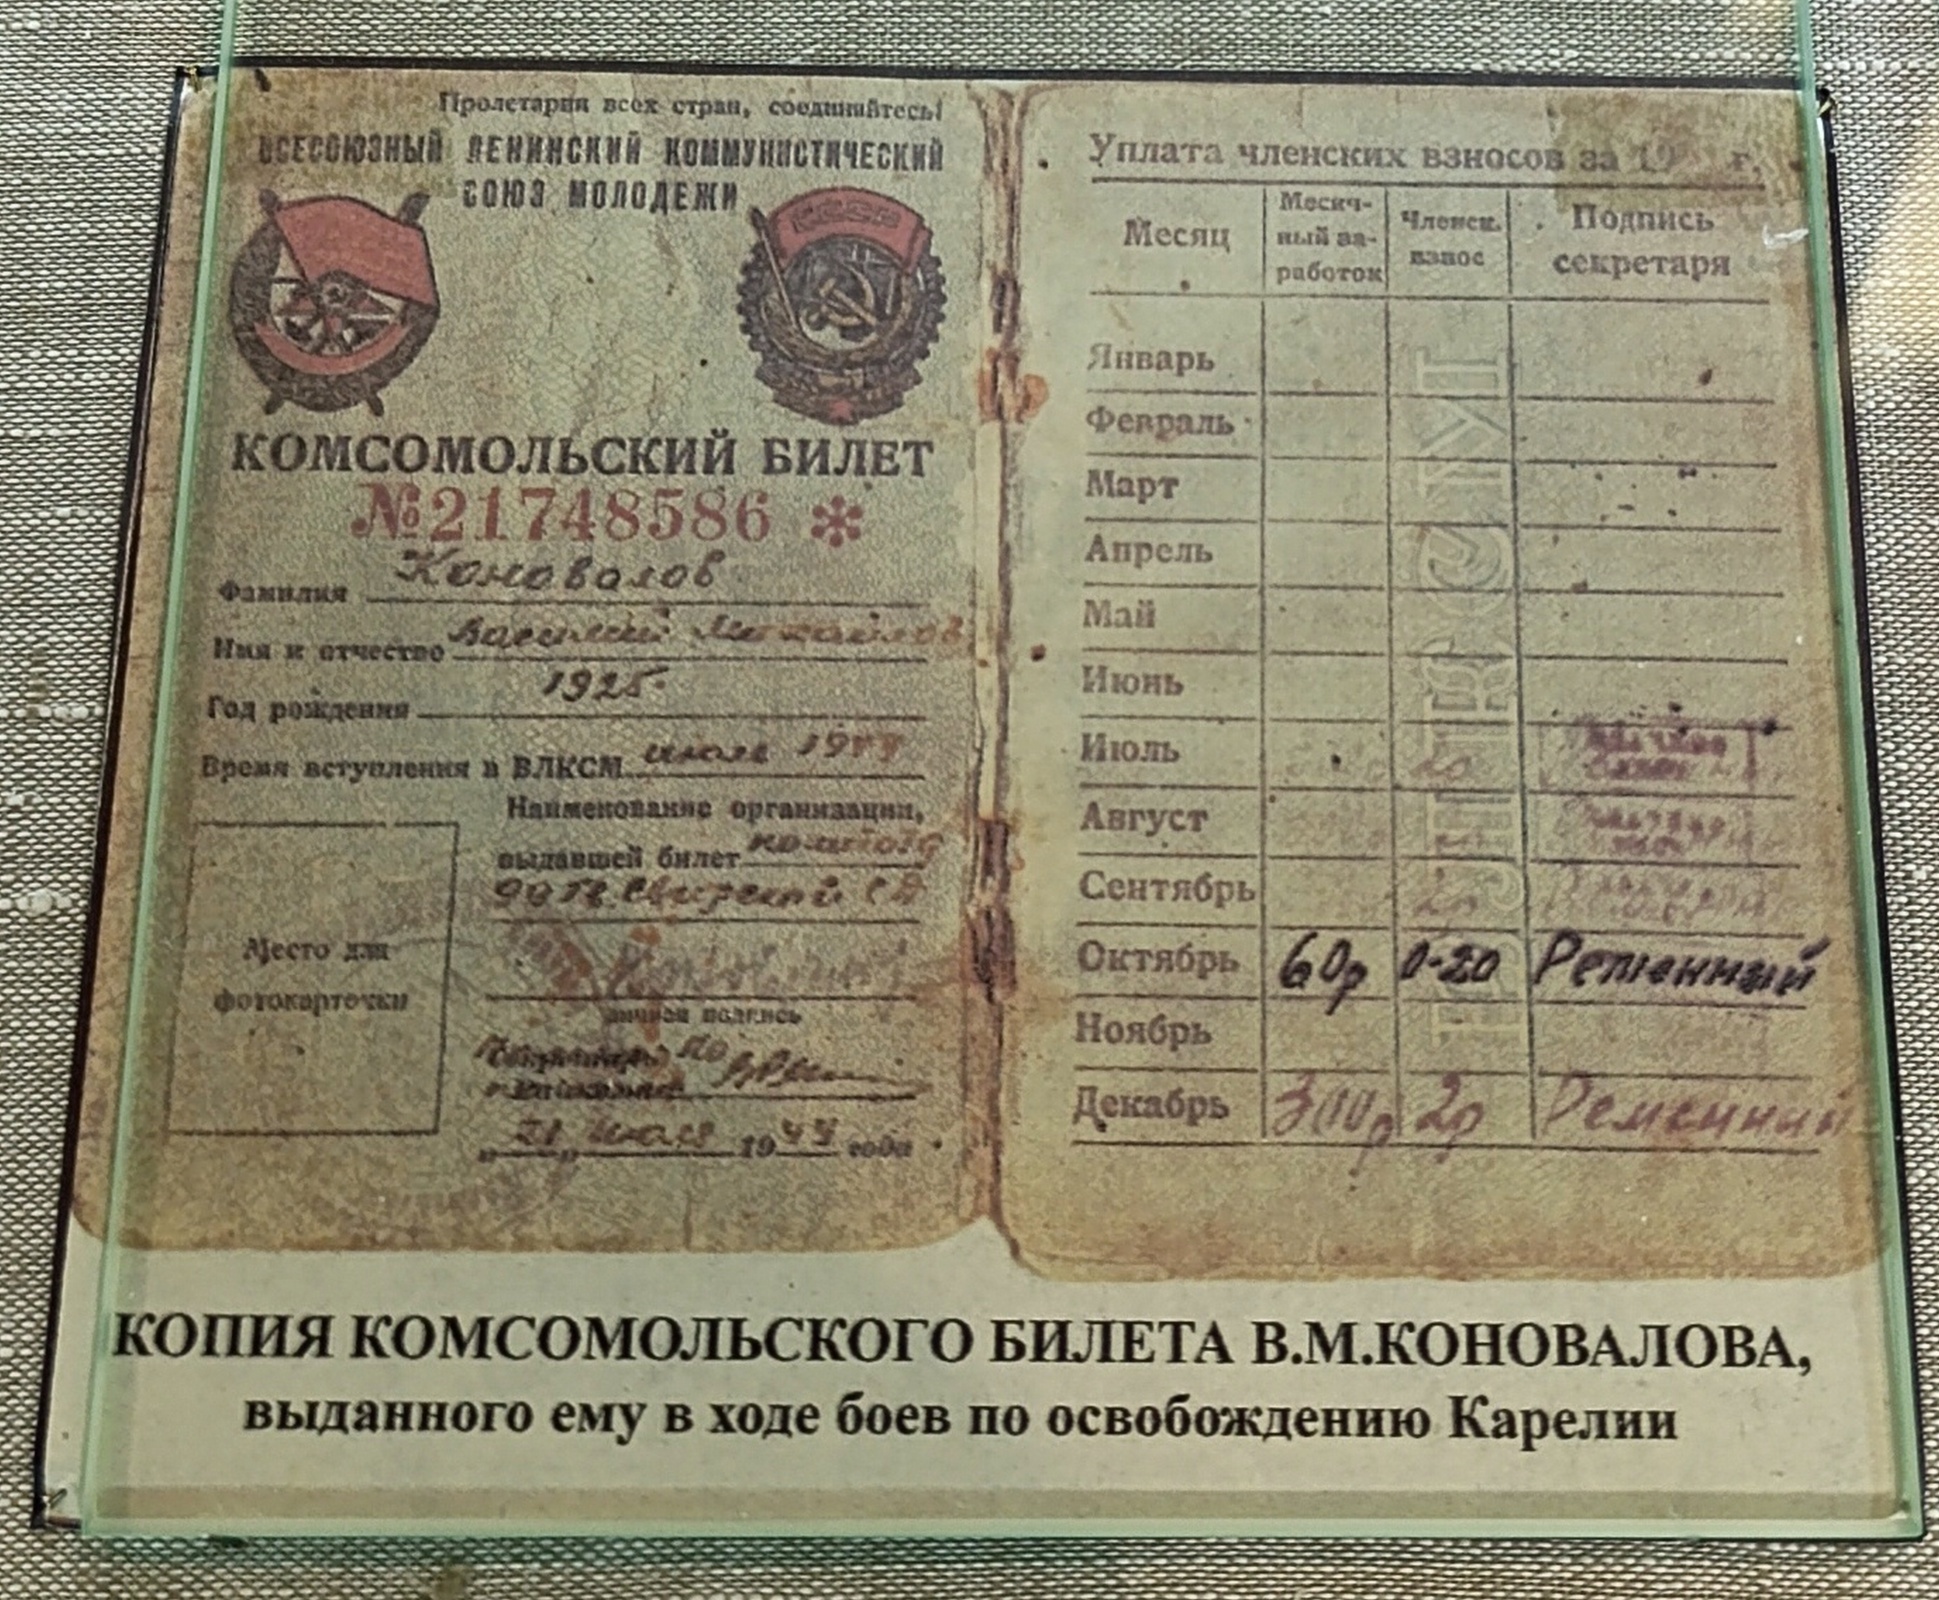 Пролетарии всех стран, соединяйтесь!
ВСЕСОЮЗНЫЙ ЛЕНИНСКИЙ КОММУНИСТИЧЕСКИЙ
СОЮЗ МОЛОДЕЖИ
СССР
КОМСОМОЛЬСКИЙ БИЛЕТ
№21748586 *
Фамилия Коновалов
Имя и отчество Василий Михайлов
Год рождения 1925
Время вступления в ВЛКСМ июль 1944
Наименование организации,
выдавшей билет
Свирской СД
Место для
фотокарточки
личная подпись
21 июля 1944 года
Уплата членских взносов за 19 г.
Месяц Месяч-ный за-работок Членск. взнос Подпись секретаря
Январь
Февраль
Март
Апрель
Май
Июнь
Июль 2р
Август
Сентябрь 2р
Октябрь 60р 0-20 Ременный
Ноябрь
Декабрь 300р 2р Ременный
КОПИЯ КОМСОМОЛЬСКОГО БИЛЕТА В.М.КОНОВАЛОВА,
выданного ему в ходе боев по освобождению Карелии